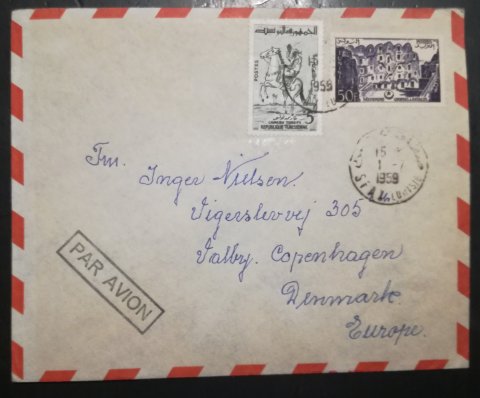 الجمهورية التونسية
POSTES
5
REPUBLIQUE TUNISIENNE
50
15
1959
15
1 - 7
1959
SFAX
TUNISIE
Frn.
Inger Nielsen.
Vigerslevvej 305
Valby. Copenhagen
Denmark.
Europe.
PAR AVION